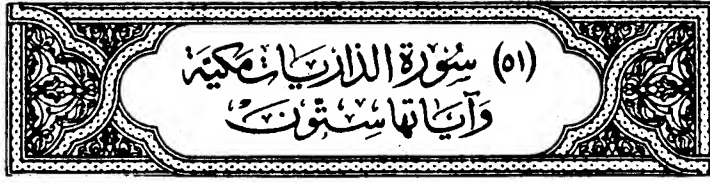 (٥١) سُوْرَةُ الذَّارِيَاتِ مَكِّيَّة
وَآيَاتُهَا سِتُّونَ